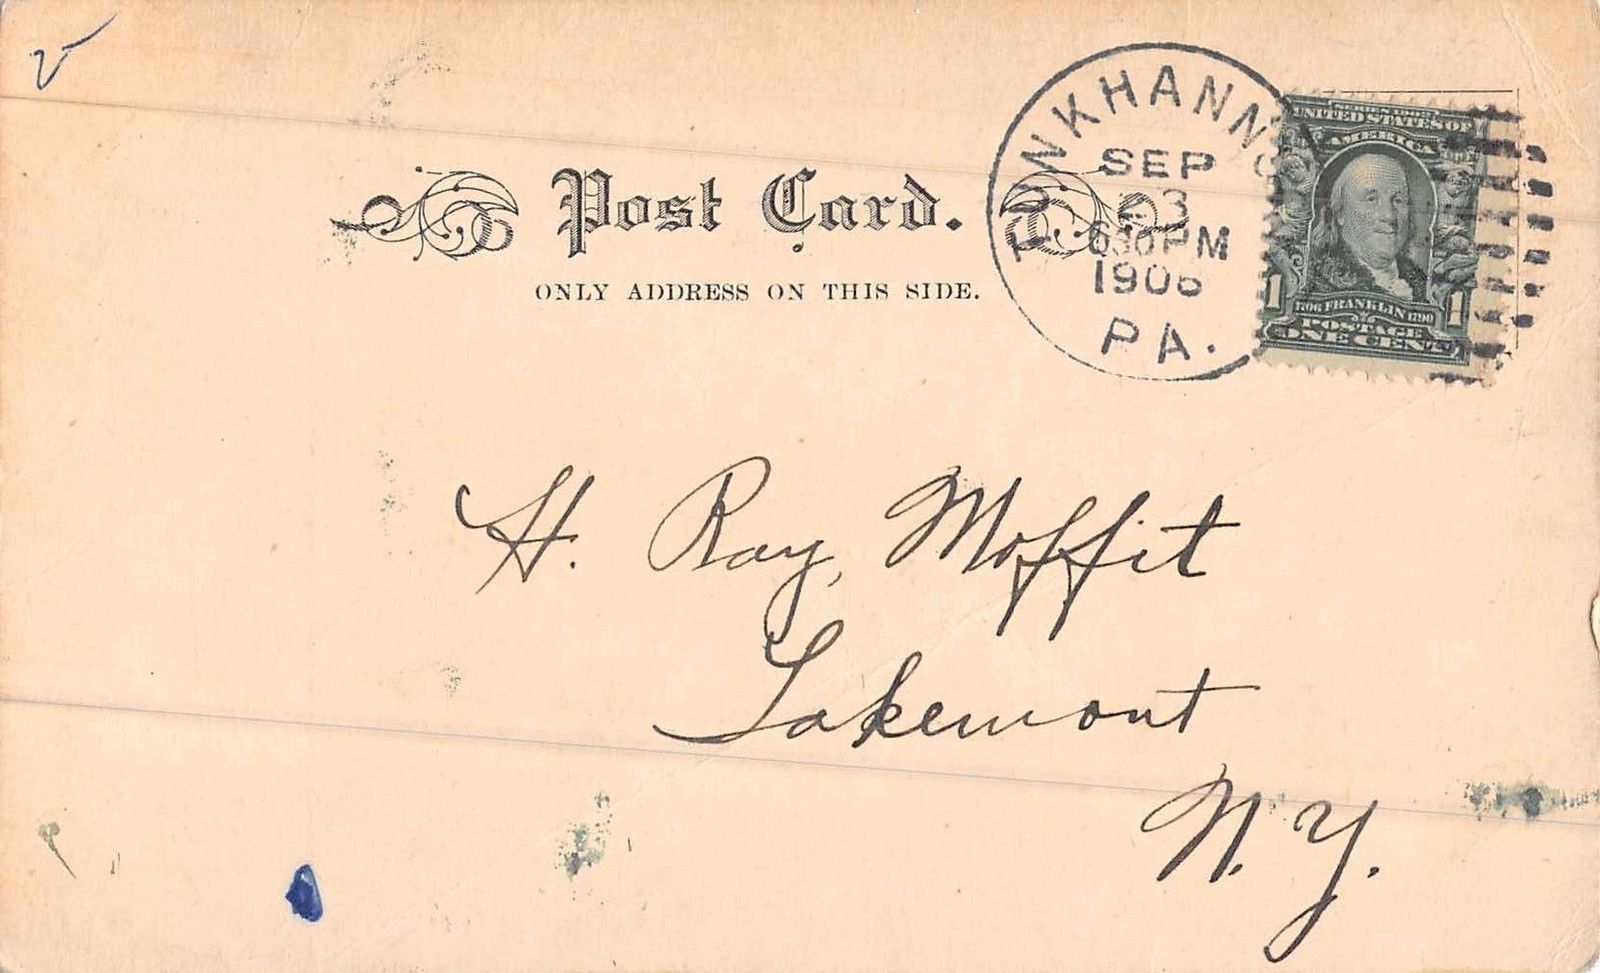 Post Card.
ONLY ADDRESS ON THIS SIDE.
TUNKHANNO
SEP
23
630 PM
1906
PA.
UNITED STATES OF
AMERICA
1 1706 FRANKLIN 1790 1
POSTAGE
ONE CENT
H. Ray, Moffit
Lakemont
N. Y.